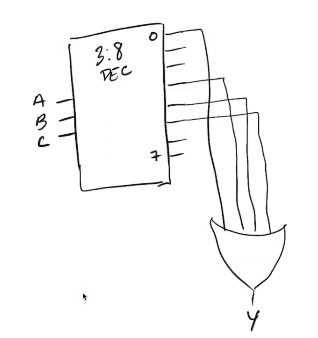 0
3:8
DEC
A
B
C
7
Y